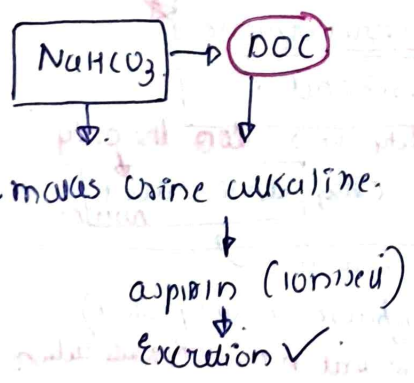 NaHCO3 → DOC
makes Urine alkaline.
aspirin (ionised)
Excretion ✓